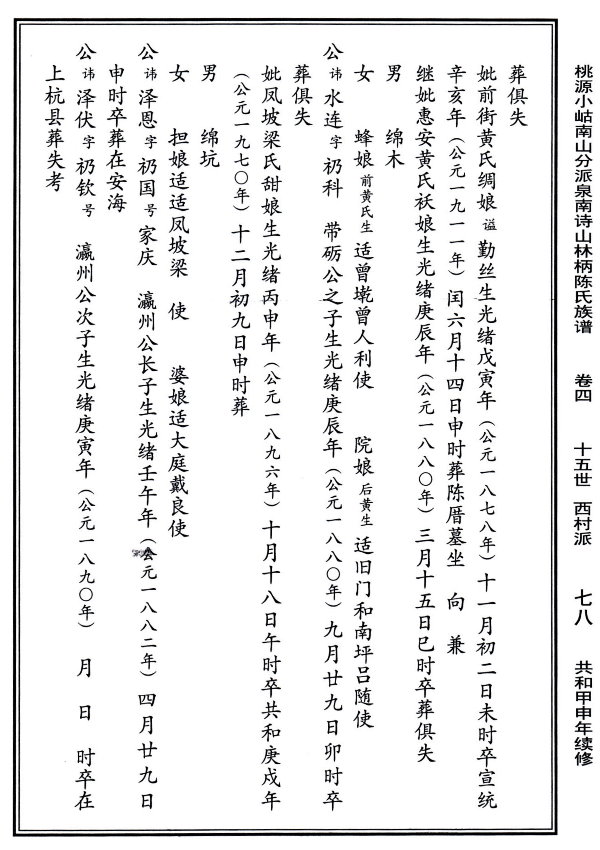 桃源小岵南山分派泉南诗山林柄陈氏族谱 卷四 十五世 西村派 七八 共和甲申年续修
葬俱失
妣前街黄氏绸娘 谥 勤丝生光绪戊寅年(公元一八七八年)十一月初二日未时卒宣统
辛亥年(公元一九一一年)闰六月十四日申时葬陈厝墓坐 向 兼
继妣惠安黄氏袄娘生光绪庚辰年(公元一八八〇年)三月十五日巳时卒葬俱失
男 绵木
女 蜂娘 前黄氏生 适曾墘曾人利使 院娘 后黄生 适旧门和南坪吕随使
公 讳 水连 字 礽科 带砺公之子生光绪庚辰年(公元一八八〇年)九月廿九日卯时卒
葬俱失
妣凤坡梁氏甜娘生光绪丙申年(公元一八九六年)十月十八日午时卒共和庚戌年
(公元一九七〇年)十二月初九日申时葬
男 绵坑
女 担娘适适凤坡梁 使 婆娘适大庭戴良使
公 讳 泽恩 字 礽国 号 家庆 瀛州公长子生光绪壬午年(公元一八八二年)四月廿九日
申时卒葬在安海
公 讳 泽伏 字 礽钦 号 瀛州公次子生光绪庚寅年(公元一八九〇年) 月 日 时卒在
上杭县葬失考